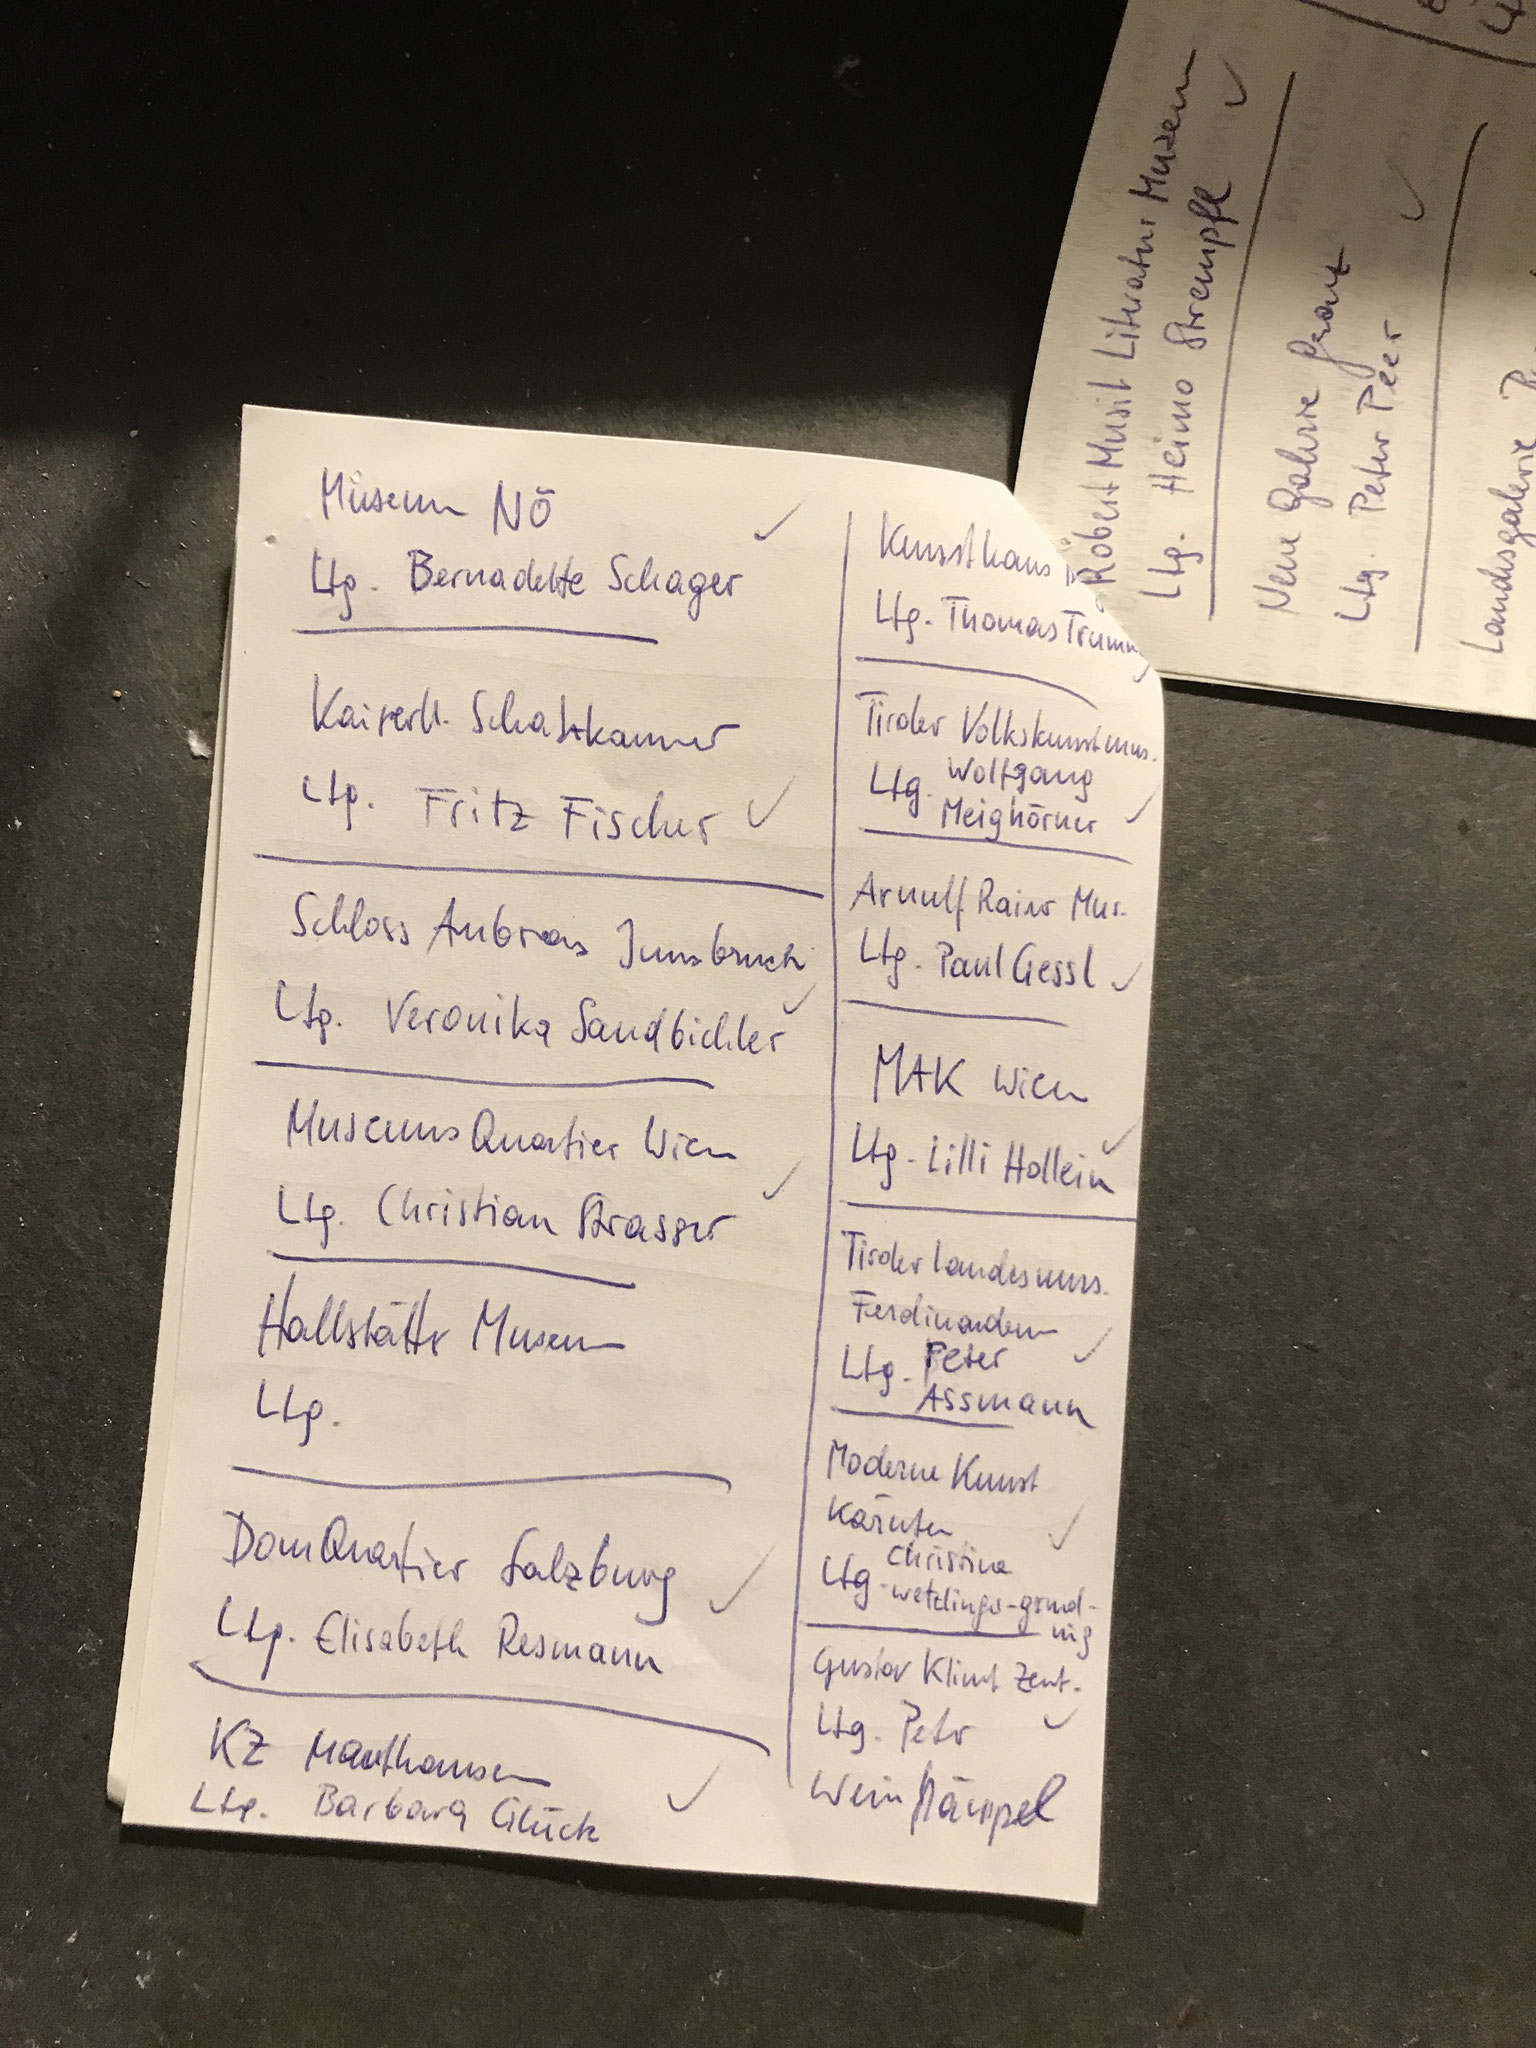 Museum NÖ
Ltg. Bernadette Schager
Kaiserl. Schatzkammer
Ltg. Fritz Fischer
Schloss Ambras Innsbruck
Ltg. Veronika Sandbichler
MuseumsQuartier Wien
Ltg. Christian Strasser
Hallstätter Museum
Ltg.
DomQuartier Salzburg
Ltg. Elisabeth Resmann
KZ Mauthausen
Ltg. Barbara Glück
Kunsthaus
Ltg. Thomas
Tiroler Volkskunstmus.
Ltg. Wolfgang
Meighörner
Arnulf Rainer Mus.
Ltg. Paul Gessl
MAK Wien
Ltg. Lilli Hollein
Tiroler Landesmus.
Ferdinandeum
Ltg. Peter
Assmann
Moderne Kunst
Kärnten
Ltg. Christine
Wetzlinger-Grund-
nig
Gustav Klimt Zent.
Ltg. Peter
Weinhäupl
Robert Musil Literatur Museum
Ltg. Heimo Strempfl
Neue Galerie Graz
Ltg. Peter Peer
Landesgalerie